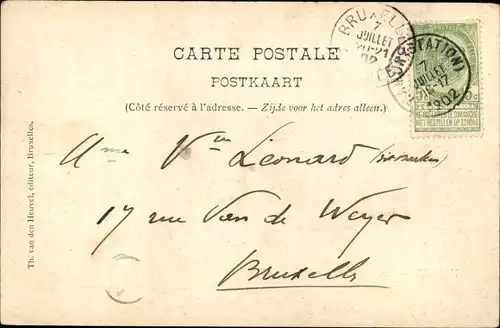 BRUXELLES
7
JUILLET
20-21
02
(STATION)
7
JUILLET
16-17
1902
NE PAS LIVRER LE DIMANCHE
NIET BESTELLEN OP ZONDAG
CARTE POSTALE
POSTKAART
(Côté réservé à l'adresse. – Zijde voor het adres alleen.)
Mme Vve Léonard
17 rue Van de Weyer
Bruxelles
Th. van den Heuvel, éditeur, Bruxelles.